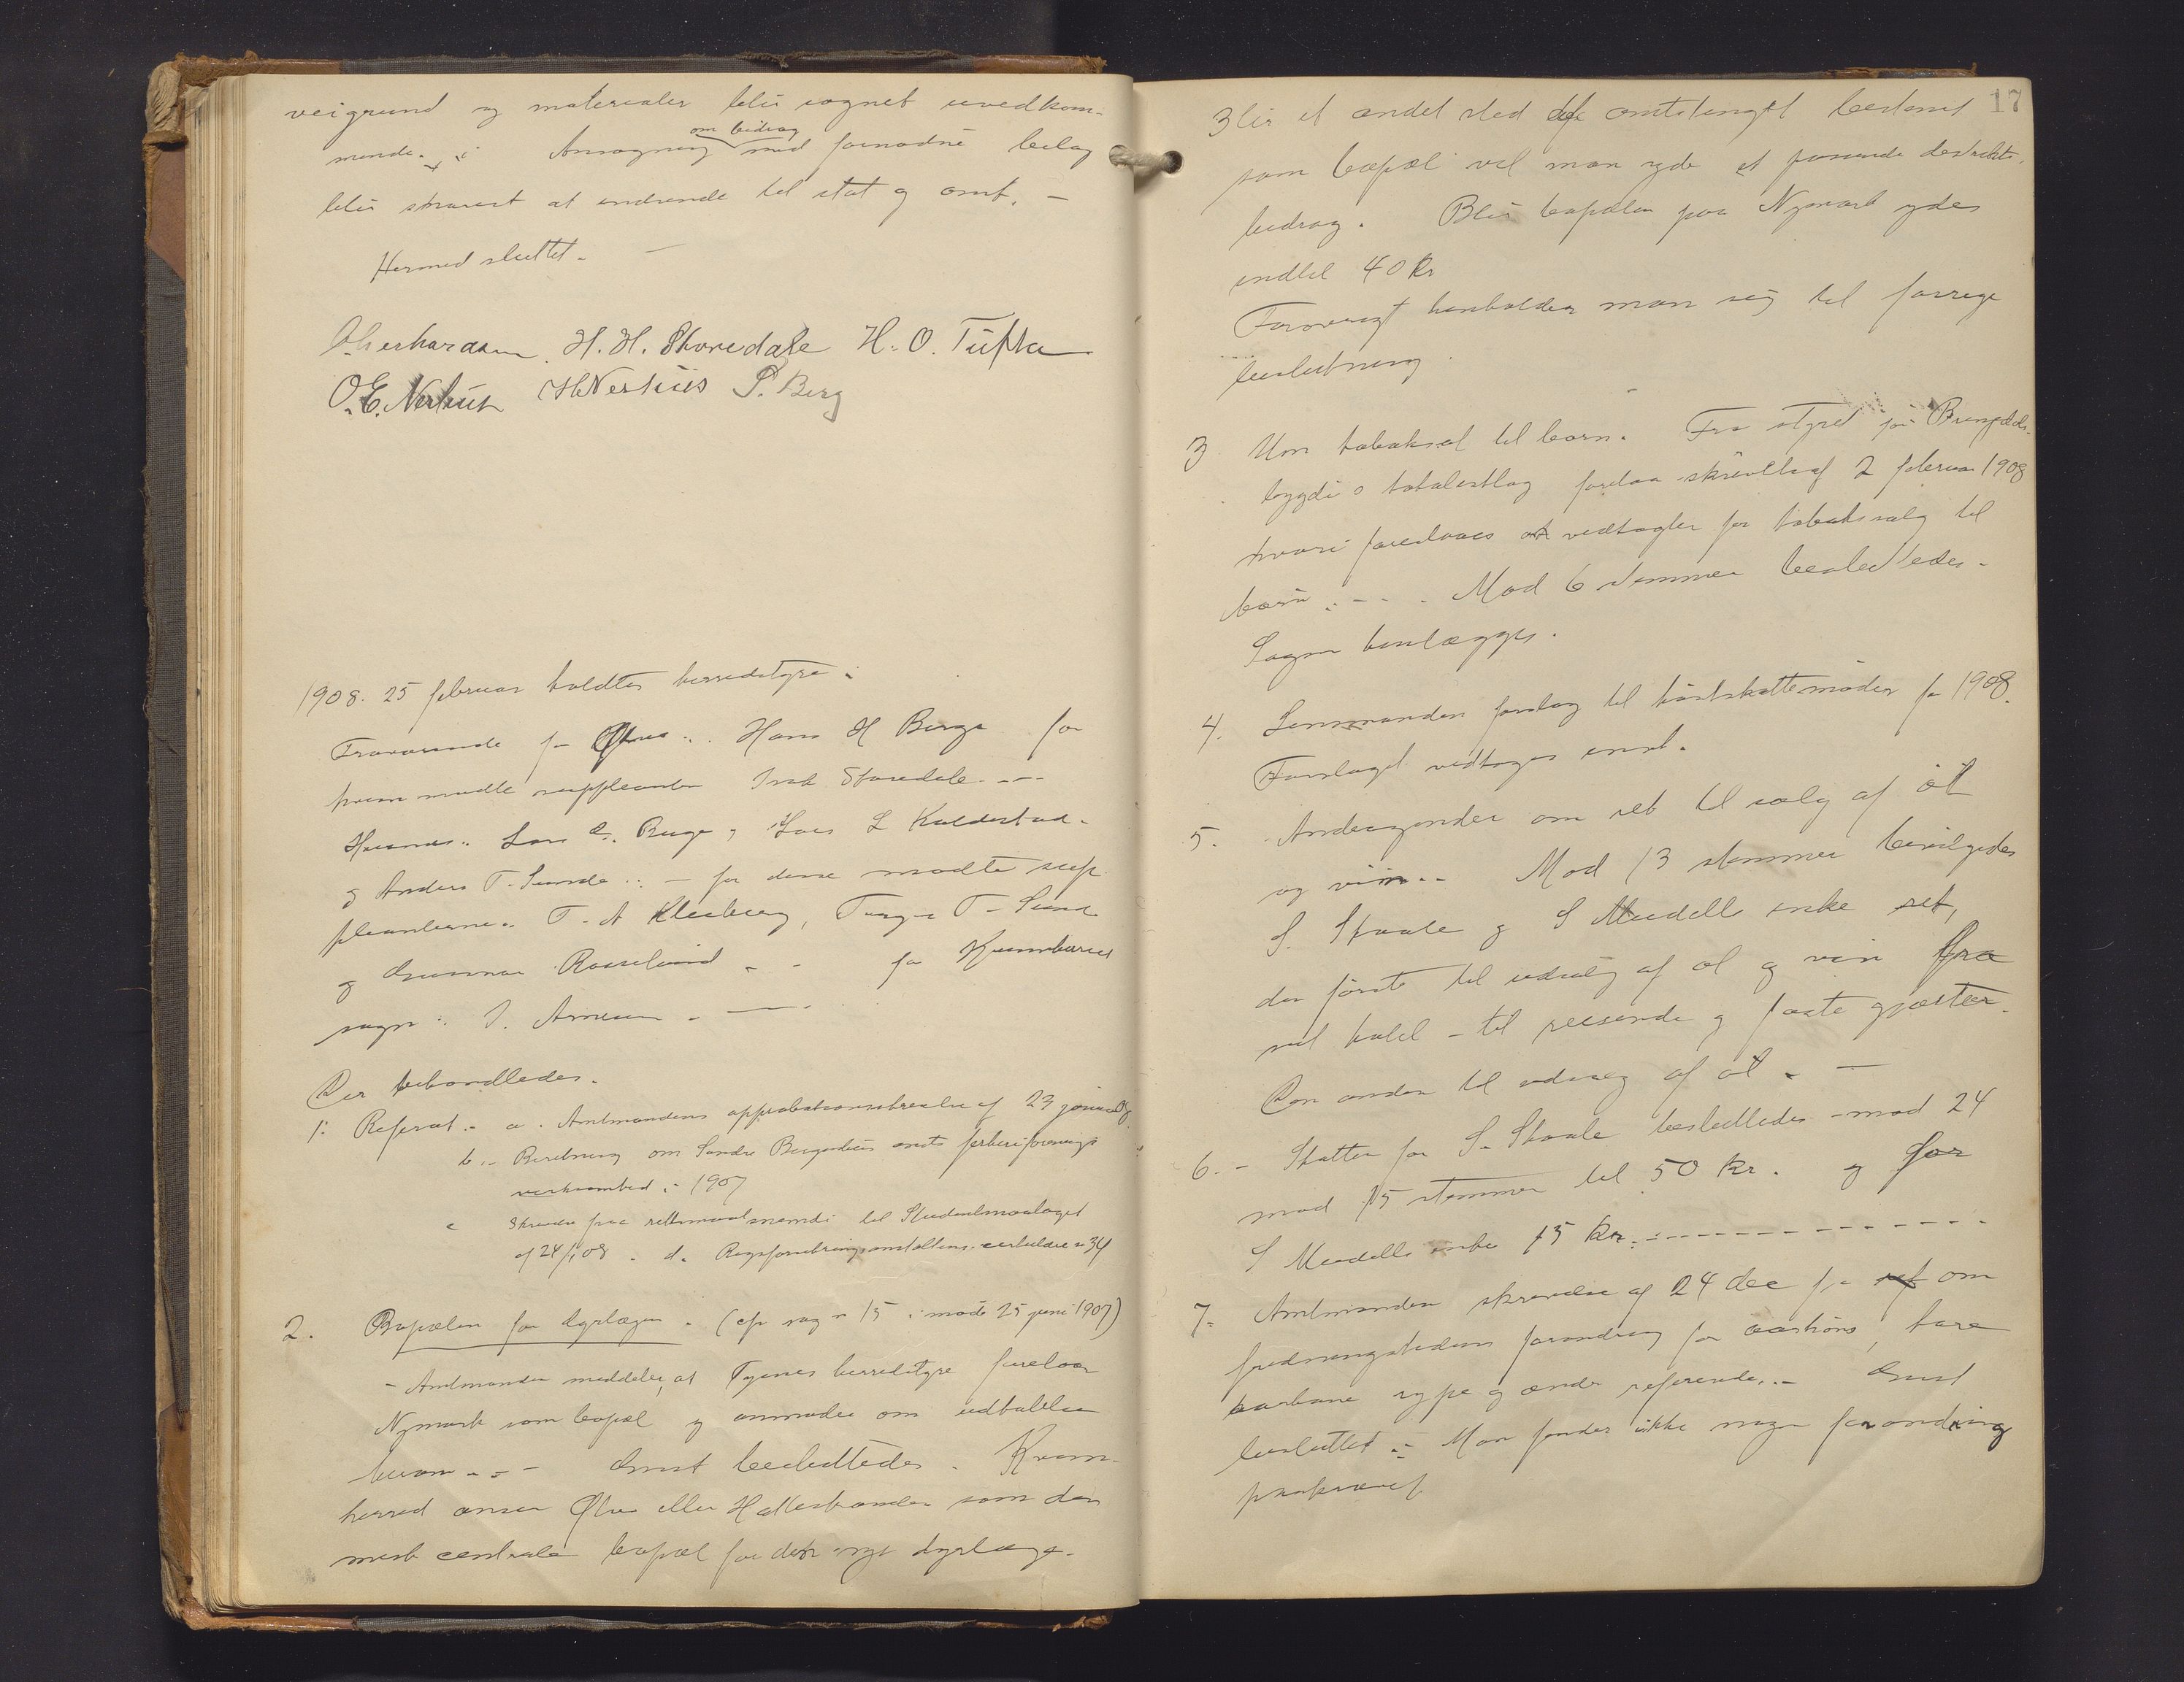 veigrund og materialer blir søgnet uvedkom-
mende. Ansøgning om bidrag med fornødne bilag
blir snarest at indsende til stat og amt. -
Hermed sluttet. -
H. H. Skaredale H. O. Tufta
O. E. Nerhus H Nerhus P. Berg
1908. 25 februar holdtes herredstyre.
Fraværende fra Øvre: Hans H Berge for
hvem mødte suppleanten Isak Skaredale. ---
Lars Berge, Lars L Kaldestad
og Anders T. Sunde .. - for disse mødte sup-
pleanterne. T. A Kleiberg, T. Sunde
og Gunnar for Kvamherred
sogn: J. Arnesen. -
Der behandledes.
1. Referat. - a. Amtmandens approbationsskrivelse af 23 januar 08
b. - Beretning om Søndre Bergenhus amts
virksomhed i 1907
c skrivelse fra til
af 24/1 08. d. Rigsforsikringsanstaltens cirkulære n 34
2. Bopælen for dyrlægen. (cfr sag n 15 i møde 25 juni 1907)
- Amtmanden meddeler, at herredstyre foreslaar
Nymark som bopæl og anmoder om udtalelse
herom. - - - Enst besluttedes. Kvam-
herred anser Øvre eller Hatlestranden som den
mest centrale bopæl for den nye dyrlæge.
17
Blir et andet sted af amtstinget bestemt
som bopæl vil man yde et passende destrikts-
bidrag. Blir bopælen paa Nymark ydes
indtil 40 kr
Forøvrigt henholder man sig til forrige
beslutning.
3 Um tobaksal til born. Fra styret for
bygdi's totalistlag forelaa skrivelse af 2 februar 1908
hvori foreslaaes vedtægter for tobaksalg til
børn. - - . Mod 6 stemmer besluttedes.
Sagen henlægges.
4. Lensmanden forslag til høstskattemøder for 1908.
Forslaget vedtoges enst.
5. Andragender om ret til salg af øl
og vin. - Mod 13 stemmer bevilgedes
S. Skaale og S Meidells enke ret,
den første til udsalg af øl og vin fra
sit hotel - til reisende og faste gjæster.
Den anden til udsalg af øl. -
6. - Skatten for S. Skaale besluttedes - mod 24
mod 15 stemmer til 50 kr. og for
S Meidells enke 15 kr. - - - - - - - - - - - -
7. Amtmanden skrivelse af 24 dec f. a. om
fredningstidens forandring for aarhøns,
aarhane rype og ænder refererede. - Enst
besluttet: - Man finder ikke nogen forandring
paakrævet.